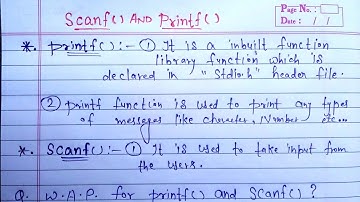 Page No. :
Date : / /
Scanf() AND Printf()
*. printf() :- ① It is a inbuilt function
library function which is
declared in "Stdio.h" header file.
② printf function is used to print any types
of messages like character, Number etc...
*. Scanf() :- ① It is used to take input from
the users.
Q. W.A.P. for printf() and Scanf() ?